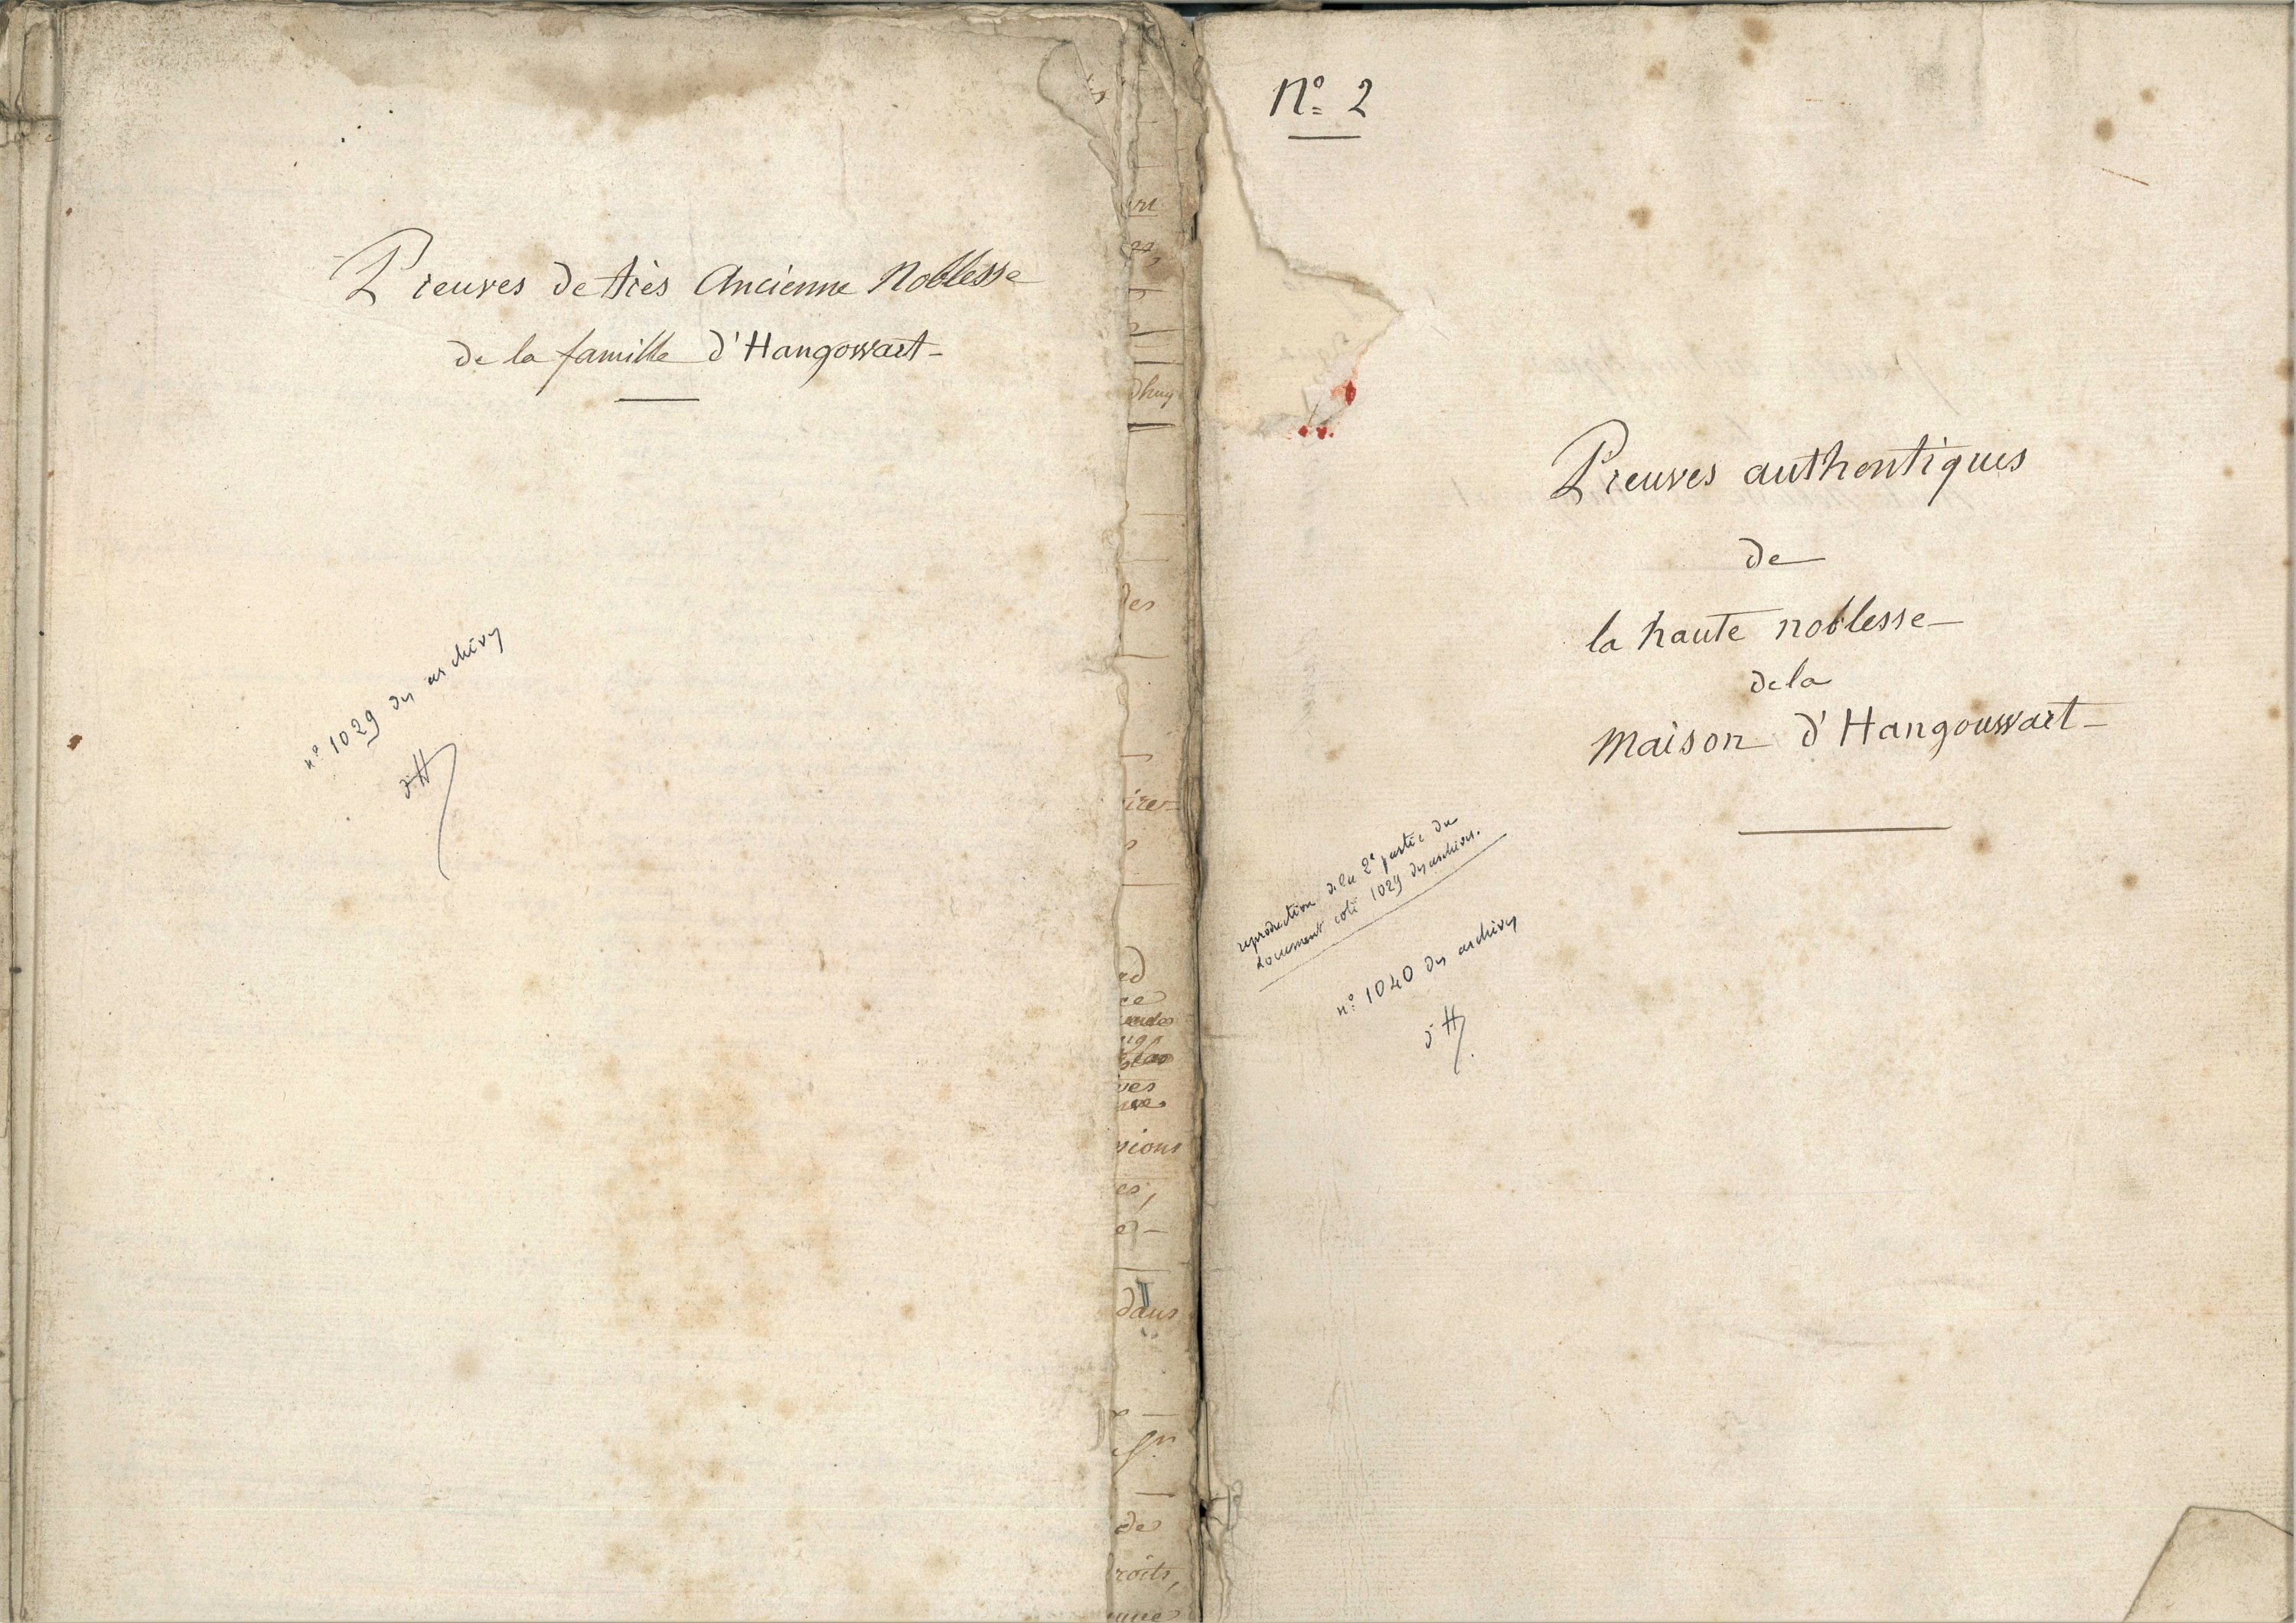 Preuves de très Ancienne Noblesse
de la famille d'Hangowart
n° 1029 des archives
d'H
vre
es,
dhuy
des
ire=
ves
pions
es,
dans
de
roits,
N° 2
Preuves authentiques
de
la haute noblesse
de la
Maison d'Hangouwart
reproduction de la 2e partie du
document coté 1029 des archives.
n° 1040 des archives
d'H